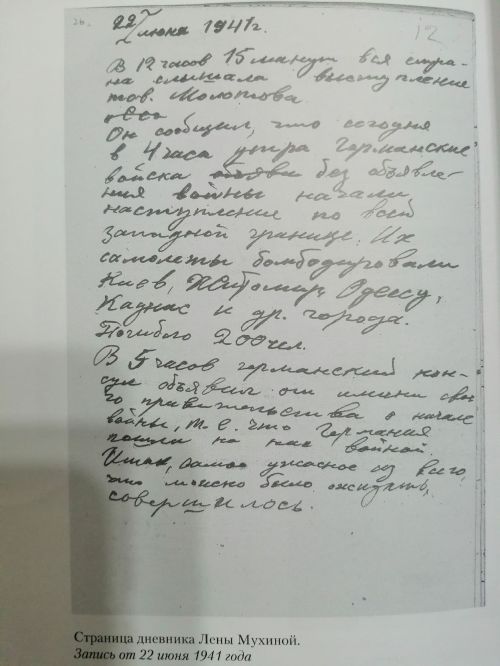 26.
22 июня 1941 г.
12
В 12 часов 15 минут вся стра-
на слышала выступление
тов. Молотова.
Он сообщил, что сегодня
в 4 часа утра Германские
войска объяви без объявле-
ния войны начали
наступление по всей
западной границе. Их
самолеты бомбодировали
Киев, Житомир, Одессу,
Каунас и др. города.
Погибло 200 чел.
В 5 часов германский кон-
сул объявил от имени свое-
го правительства о начале
войны, т.е. что Германия
пошла на нас войной.
Итак, самое ужасное из всего,
что можно было ожидать,
совершилось.
Страница дневника Лены Мухиной.
Запись от 22 июня 1941 года